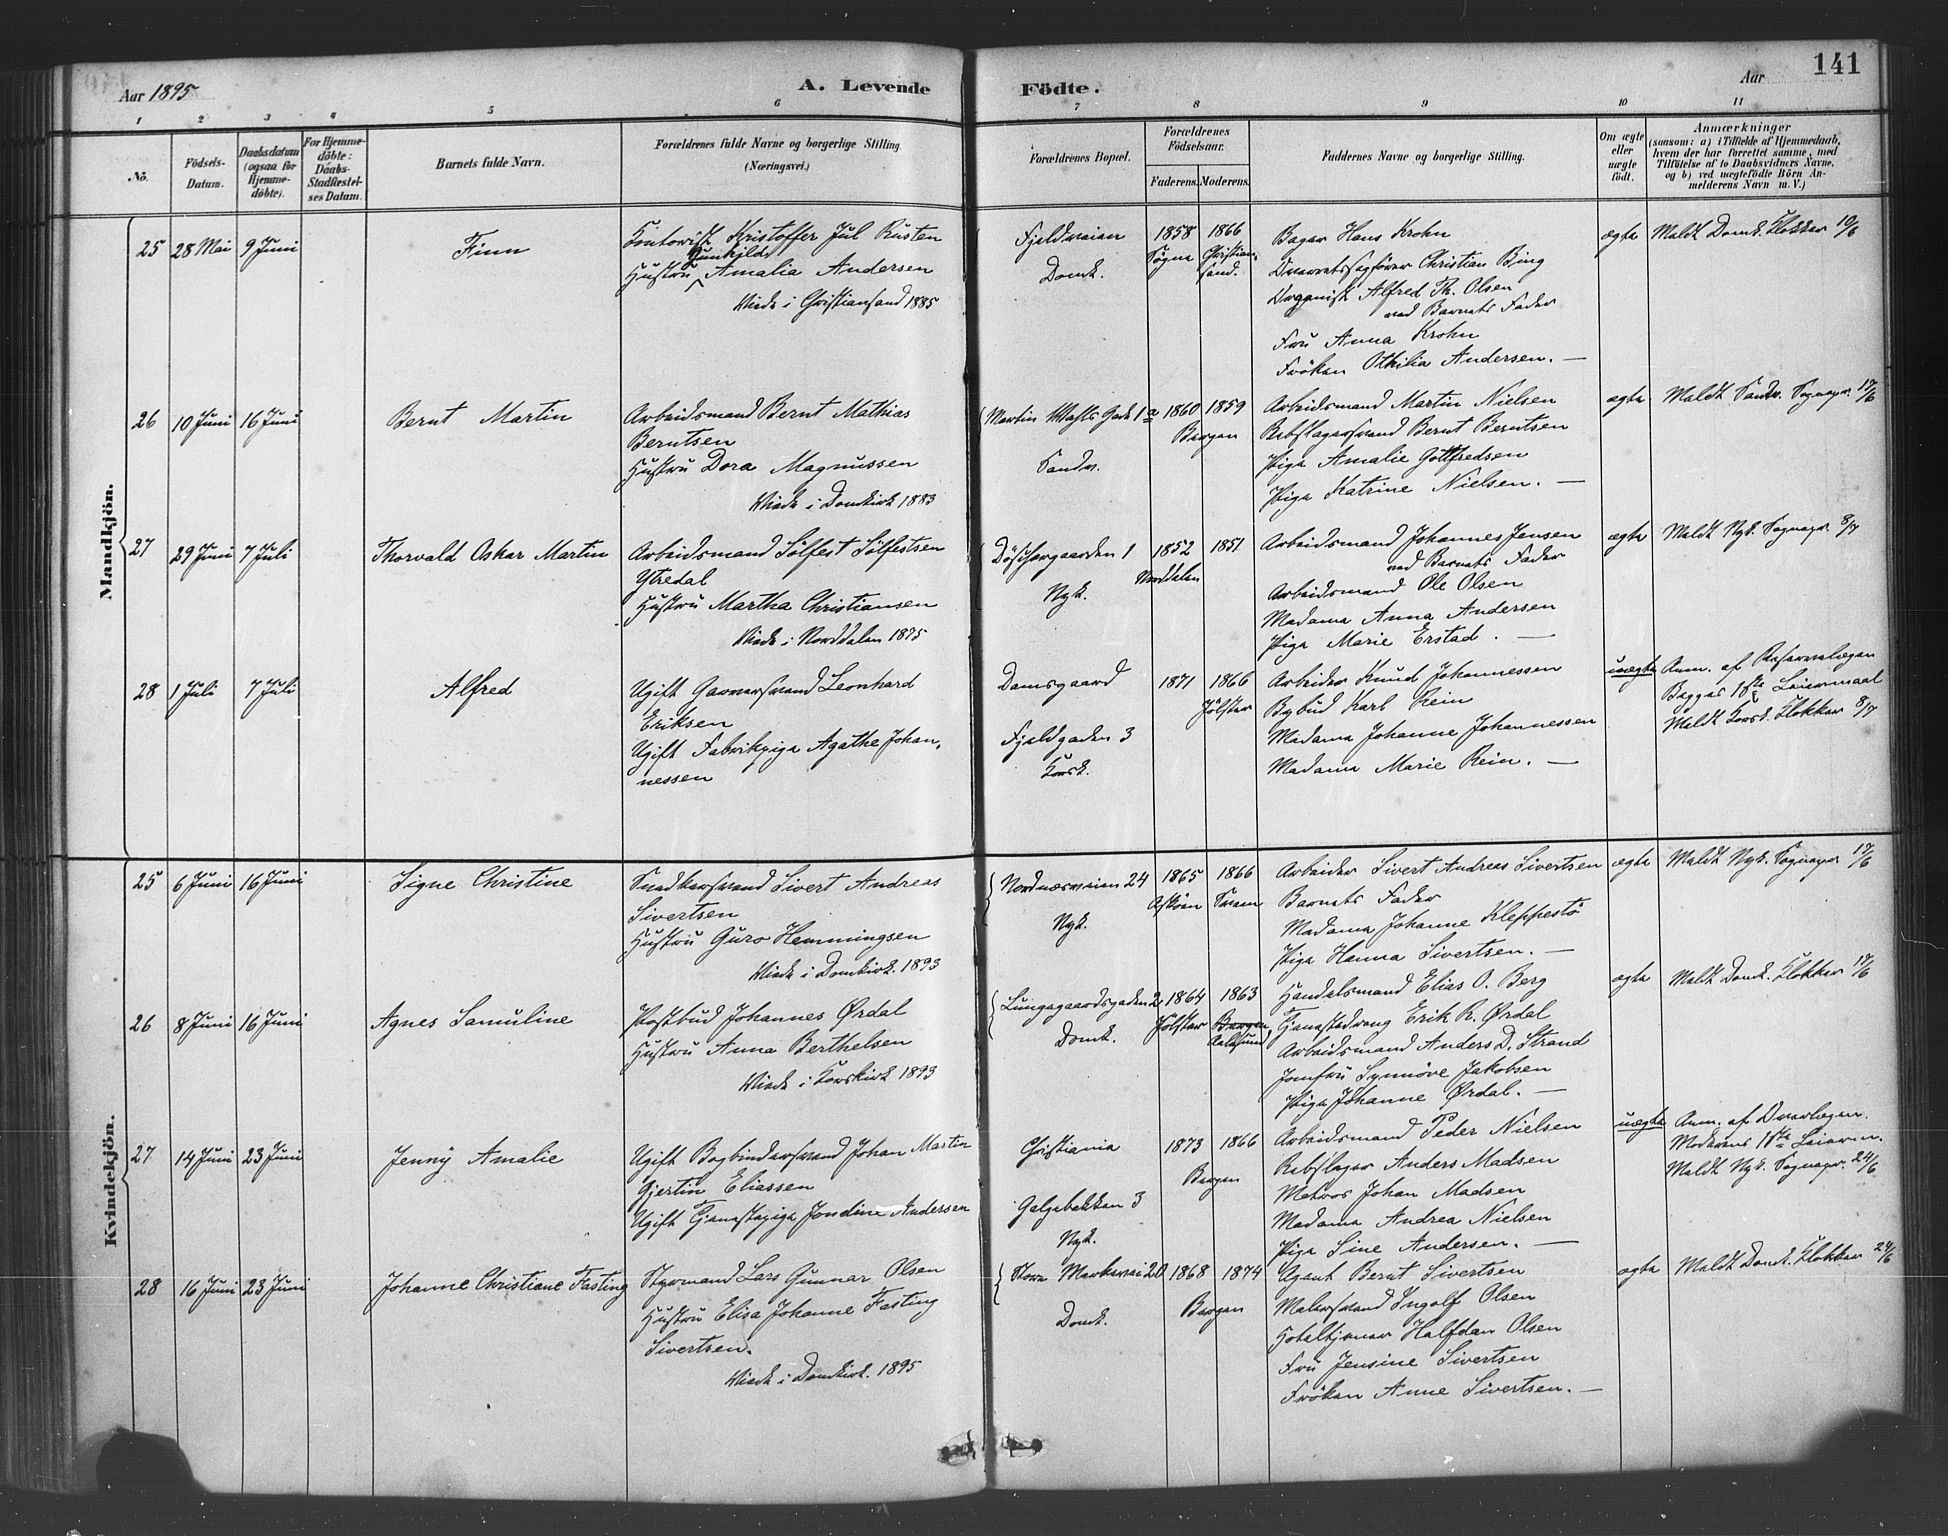 Aar 1895
A. Levende
Födte.
Aar
141
1 2 3 4 5 6 7 8 9 10 11
No.
Födsels-
Datum.
Daabsdatum
(ogsaa for
Hjemme-
döbte).
For Hjemme-
döbte:
Daabs-
Stadfæstel-
ses Datum.
Barnets fulde Navn.
Forældrenes fulde Navne og borgerlige Stilling.
(Næringsvei.)
Forældrenes Bopæl.
Forældrenes
Födselsaar.
Faderens. Moderens.
Faddernes Navne og borgerlige Stilling.
Om ægte
eller
uægte
födt.
Anmærkninger
(saasom: a) i Tilfælde af Hjemmedaab,
hvem der har forrettet samme, med
Tilföielse af to Daabsvidners Navne,
og b) ved uægtefödte Börn An-
melderens Navn m. V.)
Mandkjön.
25
28 Mai
9 Juni
Finn
Kontorist Kristoffer Jul Rusten
Gunhild
Hustru Amalia Andersen
Viede i Christiansand 1885
Fjeldveien
Domk.
1858
Søgne
1866
Christian-
sand.
Bager Hans Krohn
Overretssagfører Christian Bing
Organist Alfred Th. Olsen
ved Barnets Fader
Fru Anna Krohn
Frøken Othilia Andersen. —
ægte
Meldt Domk. Klokker 10/6
26
10 Juni
16 Juni
Bernt Martin
Arbeidsmand Bernt Mathias
Berntsen
Hustru Dora Magnussen
Viede i Domkirk 1883
Martin Wafts Gade 1 a
Sandv.
1860 1859
Bergen
Arbeidsmand Martin Nielsen
Rebslagersvend Bernt Berntsen
Pige Amalie Gottfredsen
Pige Katrine Nielsen. —
ægte
Meldt Sandv. Sognepr. 17/6
27
29 Juni
7 Juli
Thorvald Oskar Martin
Arbeidsmand Sølfest Sølfestsen
Ytredal
Hustru Martha Christiansen
Viede i Norddalen 1875
Döschergaarden 1
Nyk.
1852 1851
Norddalen
Arbeidsmand Johannes Jensen
ved Barnets Fader
Arbeidsmand Ole Olsen
Madame Anna Andersen
Pige Marie Erstad. —
ægte
Meldt Nyk. Sognepr. 8/7
28
1 Juli
7 Juli
Alfred
Ugift Garversvend Leonhard
Eriksen
Ugift Fabrikpige Agathe Johan-
nessen
Damsgaard
Fjeldgaden 3
Korsk.
1871
1866
Jølster
Arbeider Knud Johannessen
Bybud Karl Rein
Madame Johanne Johannessen
Madame Marie Rein. —
uægte
Anm. af Reservelægen
Begges 1ste Leiermaal
Meldt Korsk. Klokker 8/7
Kvindekjön.
25
6 Juni
16 Juni
Signe Christine
Snedkersvend Sivert Andreas
Sivertsen
Hustru Guro Hemmingsen
Viede i Domkirk. 1893
Nordnæsveien 24
Nyk.
1865
Askøen
1866
Sveen
Arbeider Sivert Andreas Sivertsen
Barnets Fader
Madame Johanne Kleppestø
Pige Hanna Sivertsen. —
ægte
Meldt Nyk. Sognepr 17/6
26
8 Juni
16 Juni
Agnes Samuline
Postbud Johannes Ørdal
Hustru Anna Berthelsen
Viede i Korskirk 1893
Lungegaardsgaden 2
Domk.
1864
Jølster
1863
Bergen
Aalesund
Handelsmand Elias O. Berg
Tjenestedreng Erik R. Ørdal
Arbeidsmand Anders D. Strand
Jomfru Synnøve Jakobsen
Pige Johanne Ørdal. —
ægte
Meldt Domk. Klokker 17/6
27
14 Juni
23 Juni
Jenny Amalie
Ugift Bogbindersvend Johan Martin
Gjertin Eliassen
Ugift Tjenestepige Jondine Andersen
Christiania
Galgebakken 3
Nyk.
1873 1866
Bergen
Arbeidsmand Peder Nielsen
Rebslager Anders Madsen
Matros Johan Madsen
Madame Andrea Nielsen
Pige Sine Andersen. —
uægte
Anm. af Overlægen.
Moderens 1ste Leierm.
Meldt Nyk. Sognepr. 24/6
28
16 Juni
23 Juni
Johanne Christiane Fasting
Styrmand Lars Gunnar Olsen
Hustru Elisa Johanne Fasting
Sivertsen.
Viede i Domkirk. 1895
Store Markevei 20
Domk.
1868 1874
Bergen
Agent Bernt Sivertsen
Malersvend Ingolf Olsen
Hoteltjener Halfdan Olsen
Fru Jensine Sivertsen
Frøken Anne Sivertsen. —
ægte
Meldt Domk. Klokker 24/6